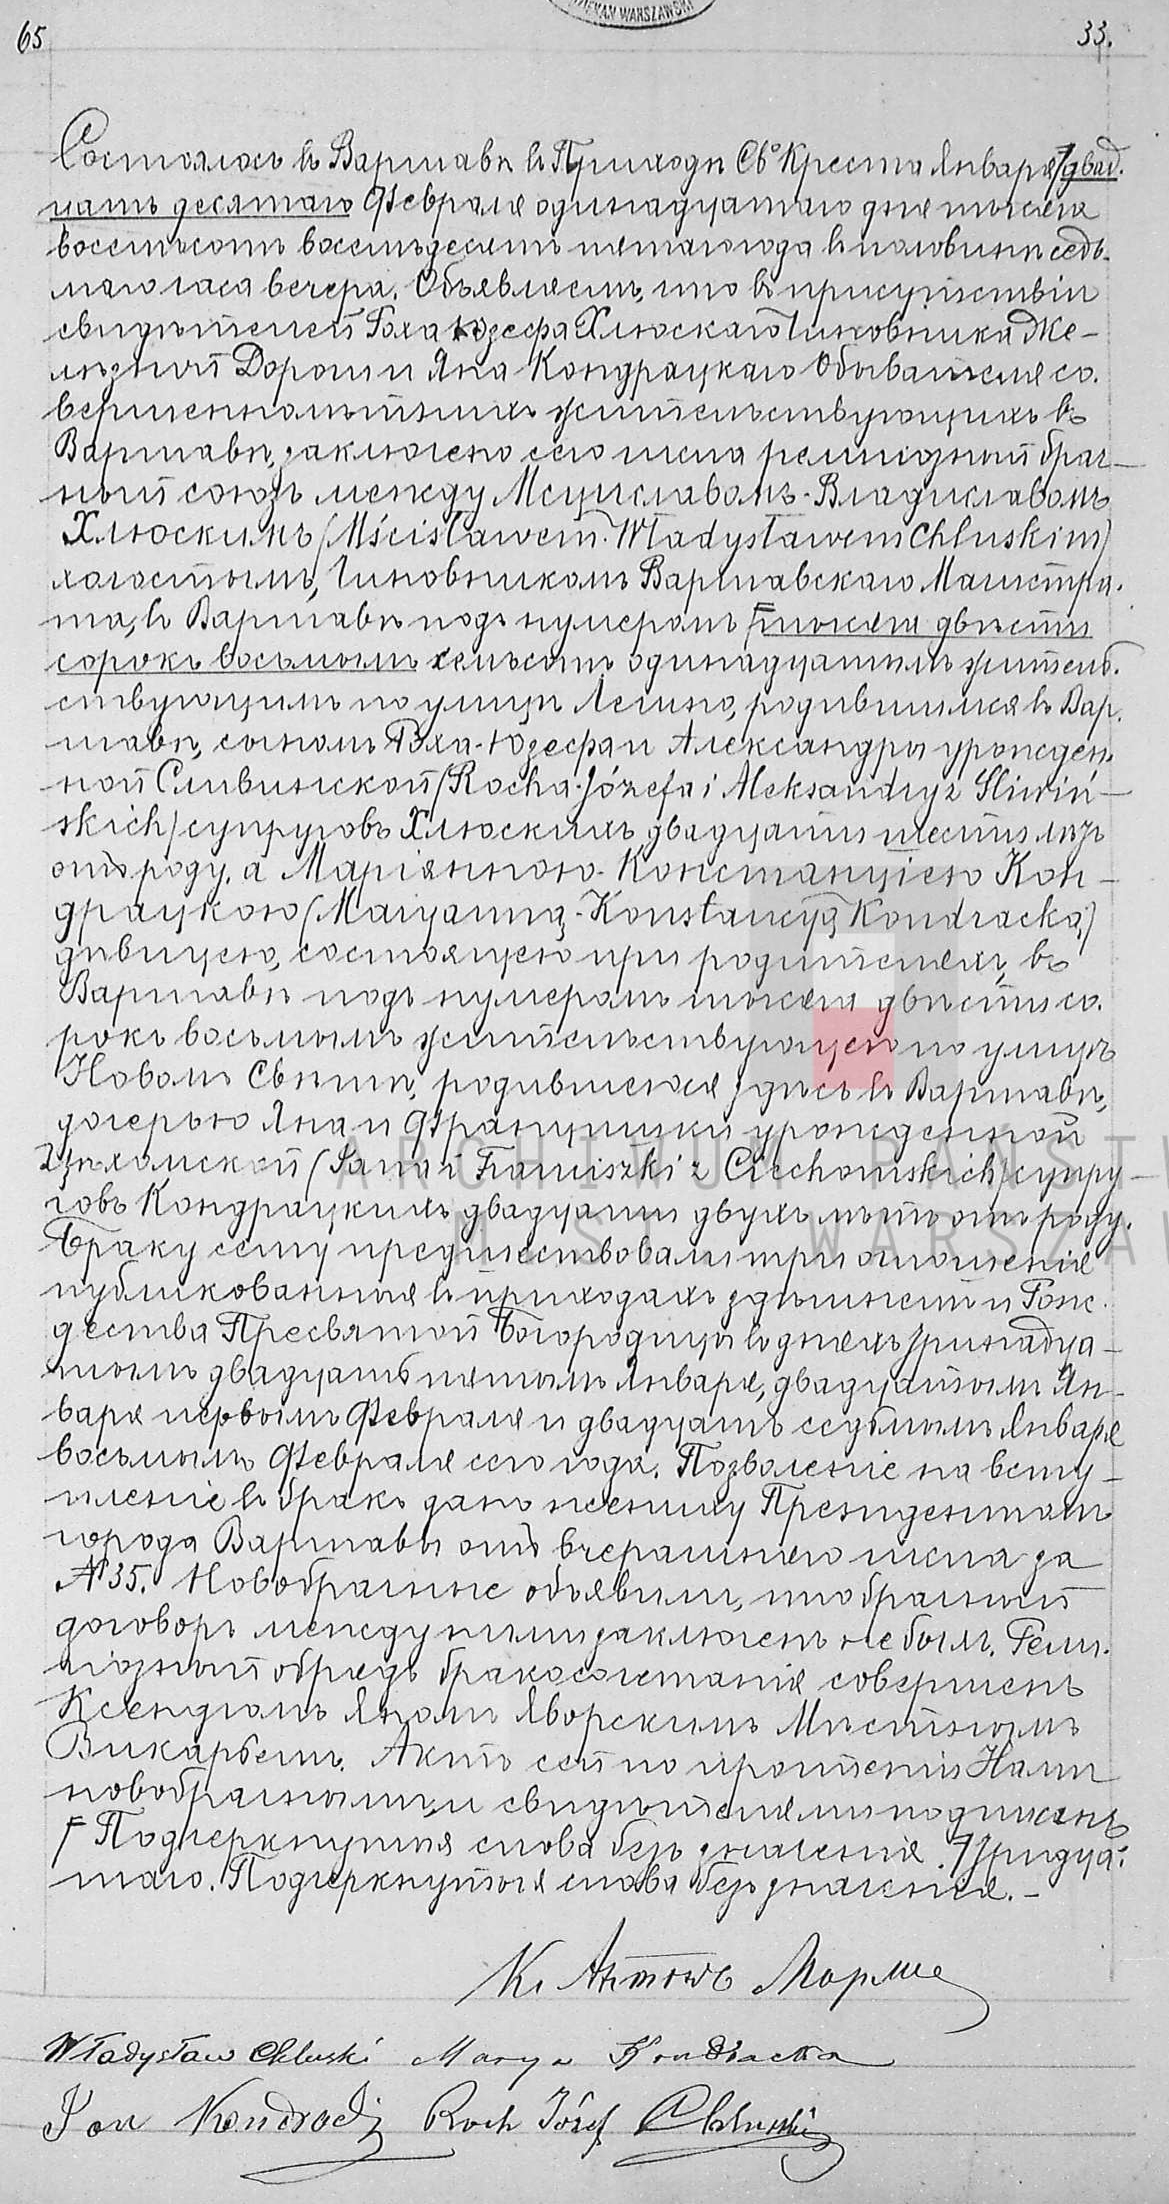 DZIEKAN WARSZAWSKI
65
33.
Состоялось въ Варшавѣ въ Приходѣ Св° Креста Января ⁊двад.
цать десятаго Февраля одинадцатаго дня тысяча
восемьсотъ восемьдесятъ пятаго года въ половинѣ седь-
маго часа вечера. Объявляемъ, что въ присутствіи
свидѣтелей Роха Юзефа Хлюскаго Чиновника Же-
лѣзной Дороги и Яна Кондрацкаго Обывателя со-
вершеннолѣтнихъ жительствующихъ въ
Варшавѣ, заключено сего числа религіозный брач-
ный союзъ между Мсциславомъ-Владиславомъ
Хлюскимъ (Mścisławem-Władysławem Chluskim)
холостымъ, Чиновникомъ Варшавскаго Магистра-
та, въ Варшавѣ подъ нумеромъ Ғтысяча двѣсти
сорокъ восьмымъ семьсотъ одинадцатымъ житель-
ствующимъ по улицѣ Лешно, родившимся въ Вар-
шавѣ, сыномъ Роха-Юзефа и Александры урожден-
ной Сливинской (Rocha-Józefa i Aleksandry z Śliwiń-
skich) супруговъ Хлюскихъ двадцати шести лѣтъ
отъ роду, а Маріанною-Констанціею Кон-
драцкою (Maryanną-Konstancyą Kondracką)
дѣвицею, состоящею при родителяхъ, въ
Варшавѣ подъ нумеромъ тысяча двѣсти со-
рокъ восьмымъ жительствующею по улицѣ
Новомъ Свѣтѣ, родившеюся здѣсь въ Варшавѣ,
дочерью Яна и Францишки урожденной
Цѣхомской (Jana i Franciszki z Ciechomskich) супру-
говъ Кондрацкихъ двадцати двухъ лѣтъ отъ роду.
Браку сему предшествовали три оглашенія
публикованныя въ приходахъ здѣшнемъ и Рож-
дества Пресвятой Богородицы въ дняхъ тринадца-
тымъ двадцать пятымъ Января, двадцатымъ Ян-
варя первымъ Февраля и двадцать седьмымъ Января
восьмымъ Февраля сего года. Позволеніе на всту-
пленіе въ бракъ дано жениху Президентомъ
города Варшавы отъ вчерашняго числа за
№ 35. Новобрачные объявили, что брачный
договоръ между ними заключенъ не былъ. Рели-
гіозный обрядъ бракосочетанія совершенъ
Ксендзомъ Яномъ Яворскимъ Мѣстнымъ
Викаріемъ. Актъ сей по прочтеніи Нами
новобрачными и свидѣтелями подписанъ
Ғ Подчеркнутыя слова безъ значенія. ⁊Тридца-
таго. Подчеркнутыя слова безъ значенія. –
К. Антонъ
Władysław Chluski Marya Kondracka
Jan Kondracki Roch Józef Chluski
ARCHIWUM PAŃSTW
M.ST. WARSZAW